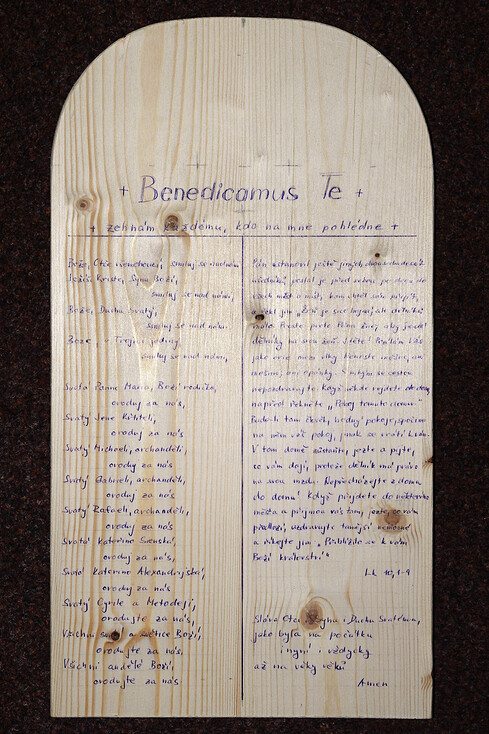 + Benedicamus Te +
+ žehnám každému, kdo na mne pohlédne +
Bože, Otče nebeský, smiluj se nad námi,
Ježíši Kriste, Synu Boží,
smiluj se nad námi,
Bože, Duchu Svatý,
smiluj se nad námi,
Bože, v Trojici jediný,
smiluj se nad námi,
Svatá Panno Maria, Boží rodičko,
oroduj za nás,
Svatý Jene Křtiteli,
oroduj za nás
Svatý Michaeli, archanděli,
oroduj za nás
Svatý Gabrieli, archanděli,
oroduj za nás
Svatý Rafaeli, archanděli,
oroduj za nás
Svatá Kateřino Sienská,
oroduj za nás,
Svatá Kateřino Alexandrijská,
oroduj za nás
Svatý Cyrile a Metoději,
orodujte za nás,
Všichni svatí a světice Boží,
orodujte za nás,
Všichni andělé Boží,
orodujte za nás
Pán ustanovil ještě jiných dvaasedmdesát
učedníků, poslal je před sebou po dvou do
všech měst a míst, kam chtěl sám přijít,
a řekl jim „Žeň je sice hojná, ale dělníků
málo. Proste proto Pána žně, aby poslal
dělníky na svou žeň. Jděte! Posílám vás
jako ovce mezi vlky. Nenoste měšec, ani
mošnu, ani opánky. S nikým se cestou
nepozdravujte. Když někde vejdete do domu,
napřed řekněte „Pokoj tomuto domu."
Bude-li tam člověk hodný pokoje, spočine
na něm váš pokoj, jinak se vrátí k vám.
V tom domě zůstaňte, jezte a pijte,
co vám dají, protože dělník má právo
na svou mzdu. Nepřecházejte z domu
do domu! Když přijdete do některého
města a přijmou vás tam, jezte, co vám
předloží, uzdravujte tamější nemocné
a říkejte jim „Přiblížilo se k vám
Boží království"
Lk 10,1-9
Sláva Otci i Synu i Duchu Svatému,
jako byla na počátku
i nyní i vždycky
až na věky věků
Amen